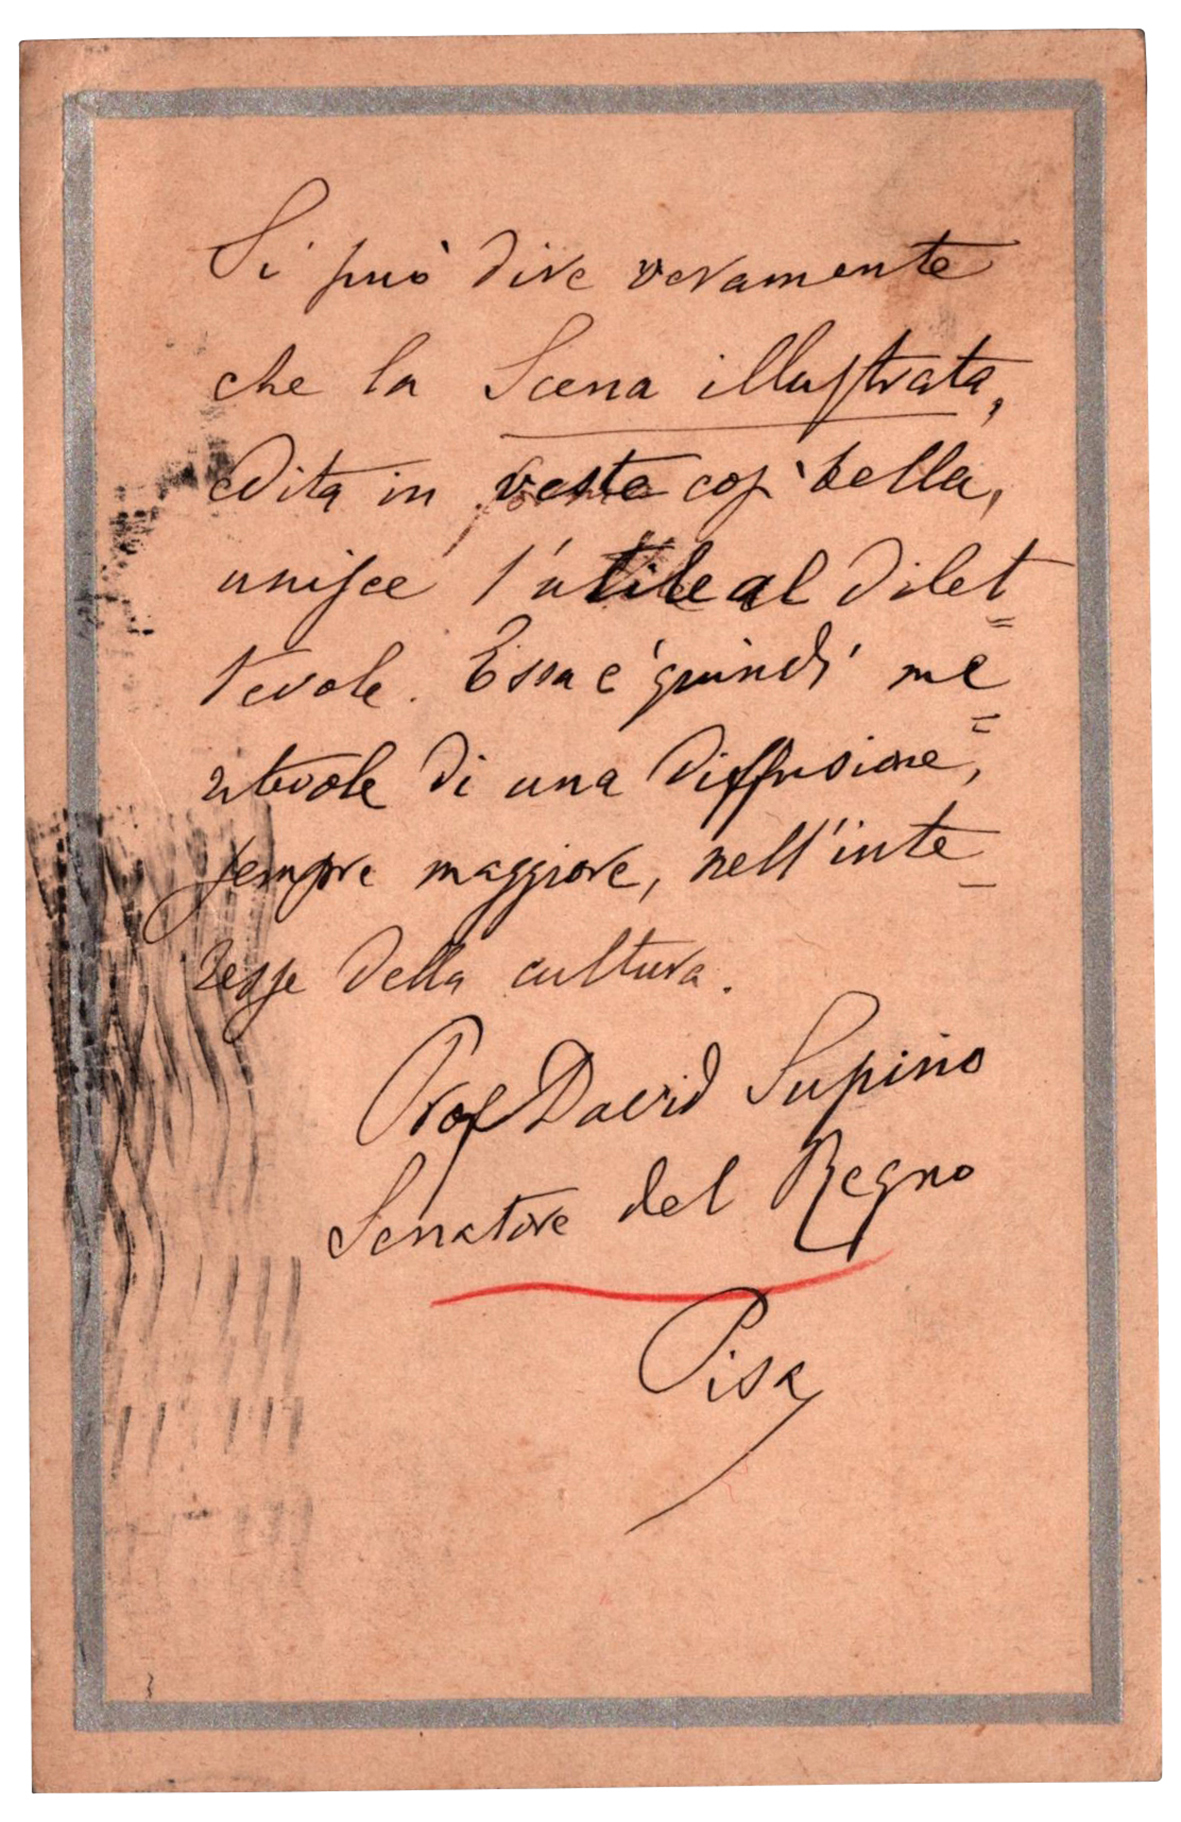 Si può dire veramente
che la Scena illustrata,
edita in veste così bella,
unisce l'utile al dilet=
tevole. Essa è quindi me=
ritevole di una diffusione,
sempre maggiore, nell'inte-
resse della cultura.
Prof David Supino
Senatore del Regno
Pisa